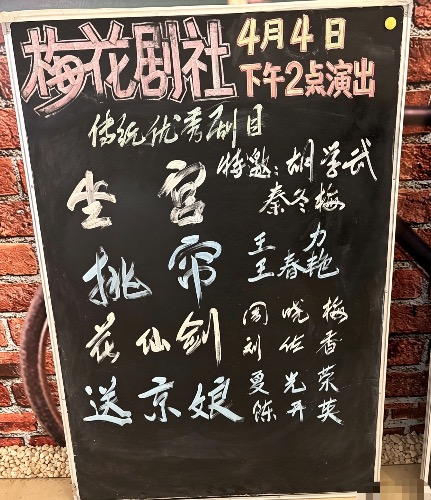 梅花剧社
4月4日
下午2点演出
传统优秀剧目
特邀：胡学武
秦冬梅
坐宫
王力
王春艳
挑帘
花仙剑
周晓梅
刘佐香
送京娘
夏光荣
陈丹英